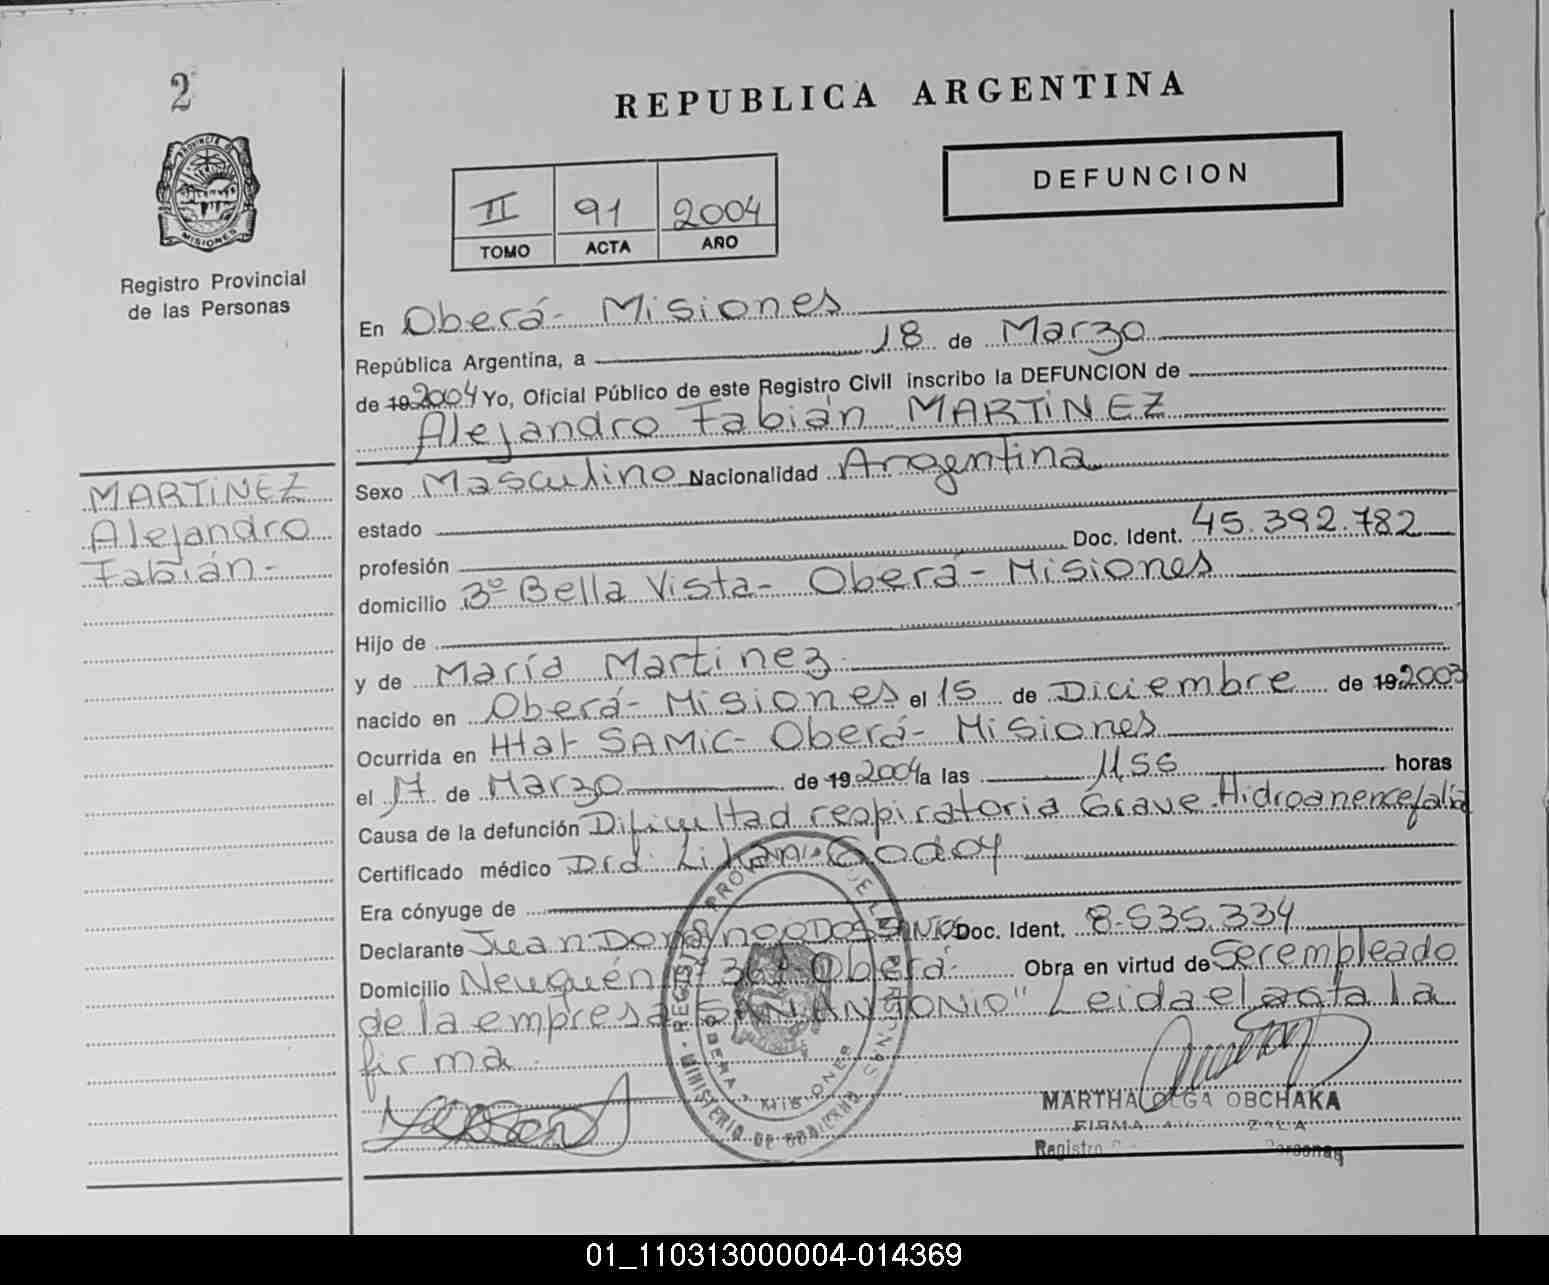 2
PROVINCIA DE
MISIONES
Registro Provincial
de las Personas
REPUBLICA ARGENTINA
DEFUNCION
II 91 2004
TOMO ACTA AÑO
En Oberá - Misiones
República Argentina, a 18 de Marzo
de 19 2004 Yo, Oficial Público de este Registro Civil inscribo la DEFUNCION de
Alejandro Fabián MARTINEZ
MARTINEZ
Alejandro
Fabián -
Sexo Masculino Nacionalidad Argentina
estado
profesión Doc. Ident. 45.392.782
domicilio Bº Bella Vista - Oberá - Misiones
Hijo de
y de María Martinez
nacido en Oberá - Misiones el 15 de Diciembre de 19 2003
Ocurrida en Htal SAMIC - Oberá - Misiones
el 17 de Marzo de 19 2004 a las 1155 horas
Causa de la defunción Dificultad respiratoria Grave. Hidroanencefalia
Certificado médico Dra. Lilian Godoy
Era cónyuge de
Declarante Juan Domingo DOS SANTOS Doc. Ident. 8.535.334
Domicilio Neuquén Nº 361 Oberá - Obra en virtud de Ser empleado
de la empresa "SAN ANTONIO" Leida el acta la
firma.
REGISTRO PROVINCIAL DE LAS PERSONAS
MINISTERIO DE GOBIERNO
OBERA MISIONES
MARTHA OLGA OBCHAKA
FIRMA
Registro Personas
01_110313000004-014369